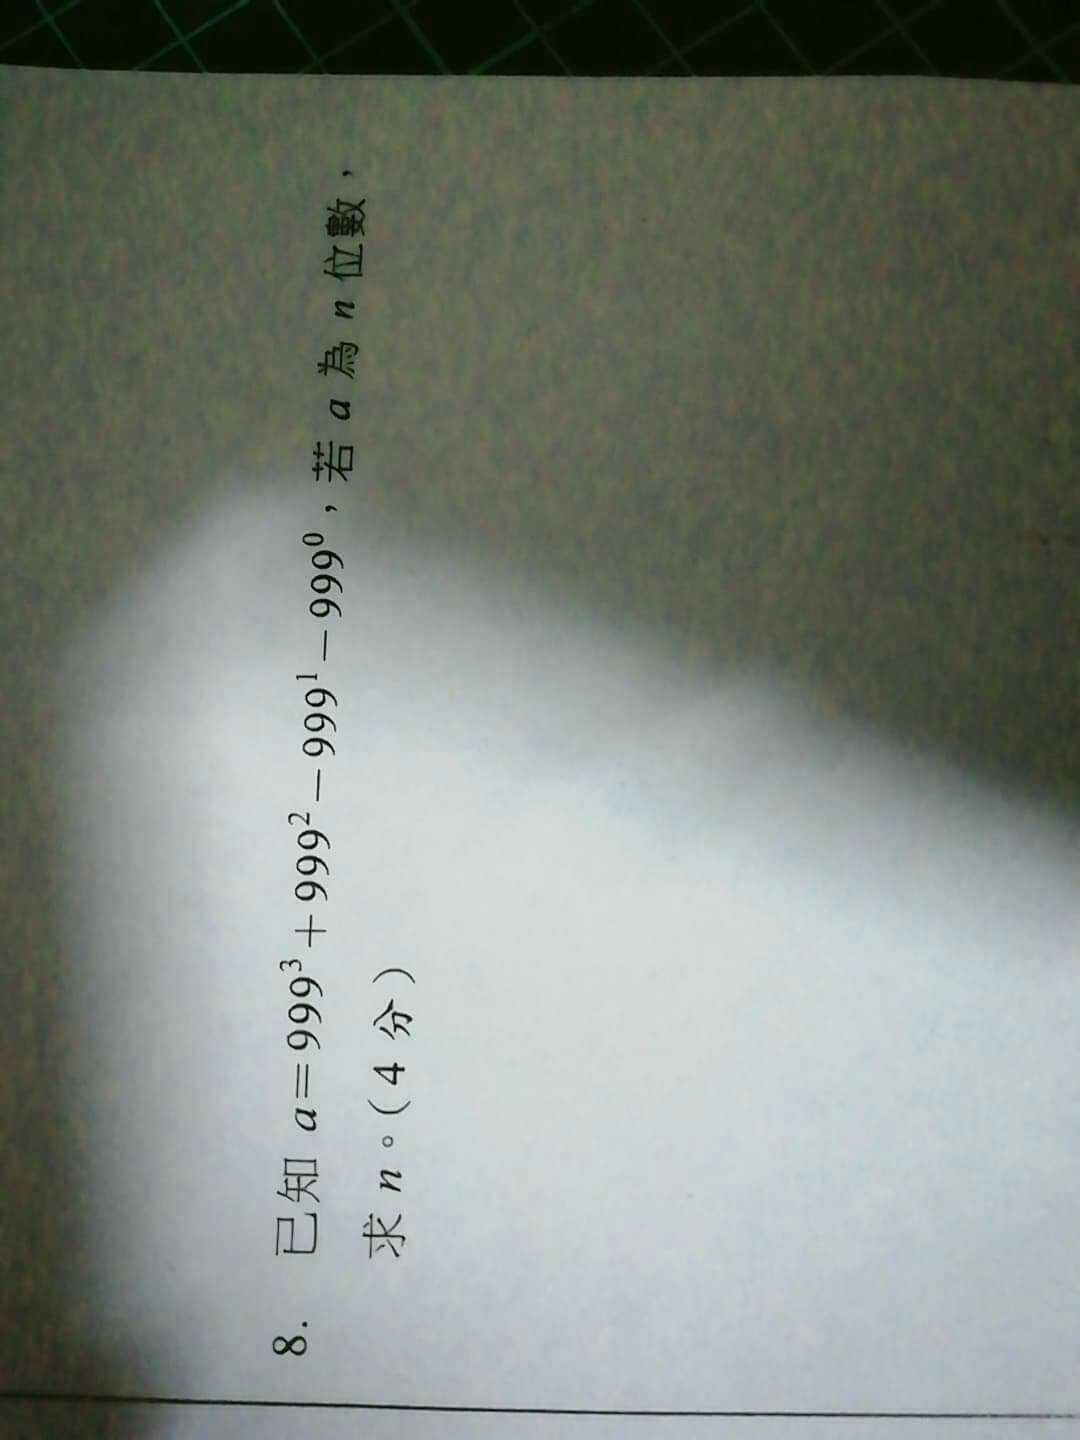 8. 已知 a＝999³＋999²－999¹－999⁰，若 a 為 n 位數，
求 n。（4 分）